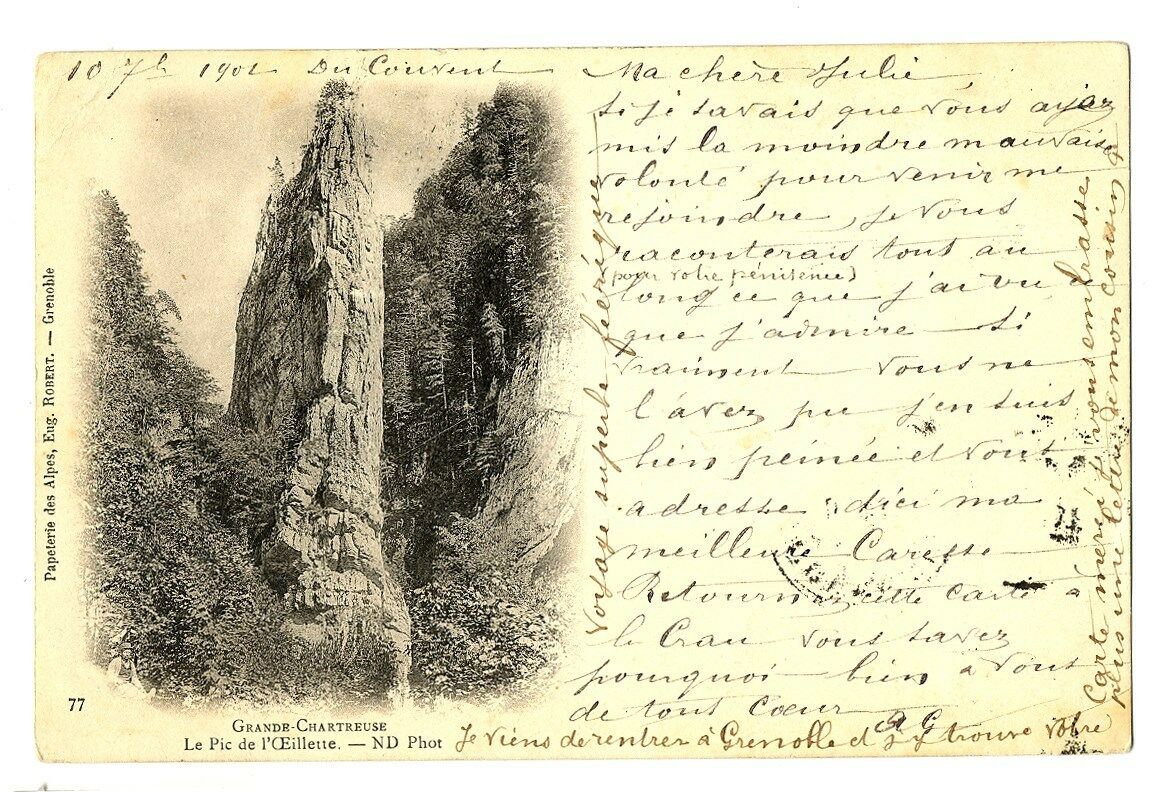 10 7b 1901 Du Couvent
Ma chère Julie
Si je savais que vous ayez
mis la moindre mauvaise
volonté pour venir me
rejoindre, je vous
raconterais tout au
(pour votre pénitence)
long ce que j'ai vu
que j'admire — Si
vraiment vous ne
l'avez pu j'en suis
bien peinée et vous
adresse d'ici ma
meilleure Caresse —
Retournez cette carte à
la Crau vous savez
pourquoi bien à vous
de tout Cœur
A G
Je viens de rentrer à Grenoble et j'y trouve votre
Carte merci & vous embrasse
plus une lettre de mon cousin
Voyage superbe féérique
Papeterie des Alpes, Eug. ROBERT. — Grenoble
77
GRANDE-CHARTREUSE
Le Pic de l'Œillette. — ND Phot